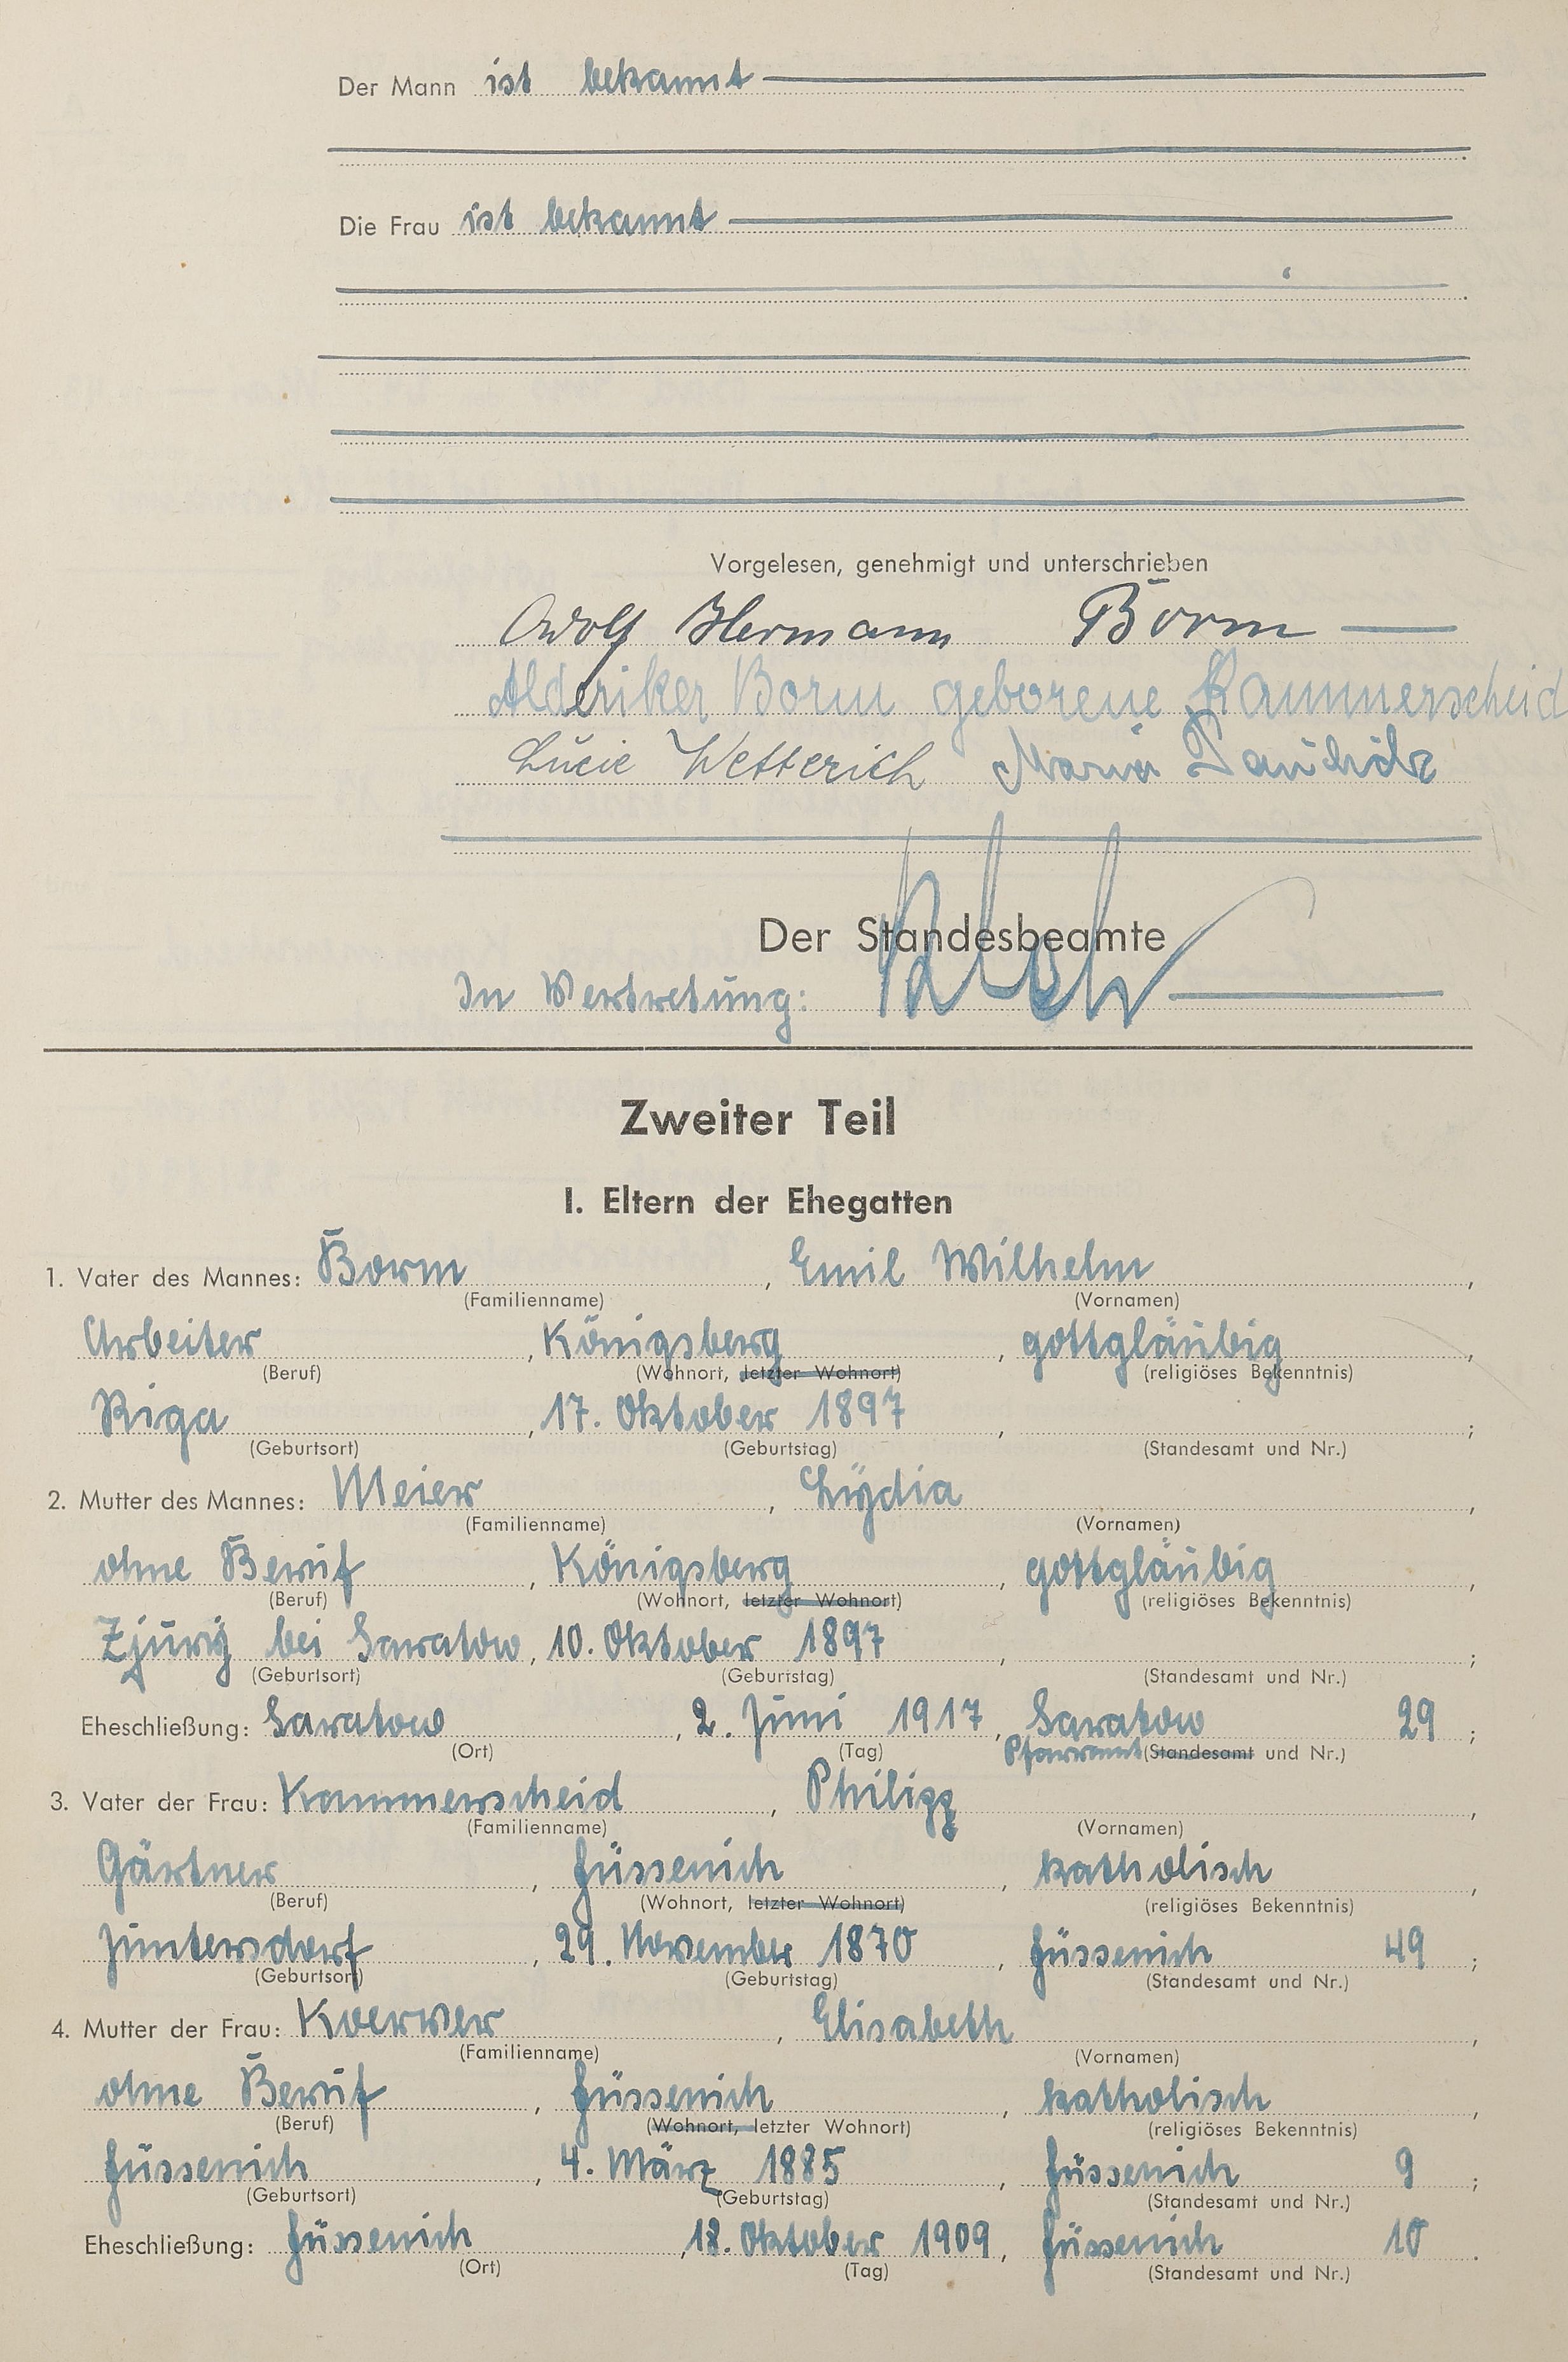 Der Mann ist bekannt
Die Frau ist bekannt
Vorgelesen, genehmigt und unterschrieben
Adolf Hermann Borm
Borm geborene Kammerscheid
Lucie Wetterich Maria
Der Standesbeamte
In Vertretung:
Zweiter Teil
I. Eltern der Ehegatten
1. Vater des Mannes: Borm, Emil Wilhelm,
(Familienname) (Vornamen)
Arbeiter, Königsberg, gottgläubig,
(Beruf) (Wohnort, letzter Wohnort) (religiöses Bekenntnis)
Riga, 17. Oktober 1897, ;
(Geburtsort) (Geburtstag) (Standesamt und Nr.)
2. Mutter des Mannes: Meier, Lydia,
(Familienname) (Vornamen)
ohne Beruf, Königsberg, gottgläubig,
(Beruf) (Wohnort, letzter Wohnort) (religiöses Bekenntnis)
bei Saratow, 10. Oktober 1897, ;
(Geburtsort) (Geburtstag) (Standesamt und Nr.)
Eheschließung: Saratow, 2. Juni 1917, Saratow 29;
(Ort) (Tag) Pfarramt (Standesamt und Nr.)
3. Vater der Frau: Kammerscheid, Philipp,
(Familienname) (Vornamen)
Gärtner, Füssenich, katholisch,
(Beruf) (Wohnort, letzter Wohnort) (religiöses Bekenntnis)
Juntersdorf, 29. November 1870, Füssenich 49;
(Geburtsort) (Geburtstag) (Standesamt und Nr.)
4. Mutter der Frau: Koerver, Elisabeth,
(Familienname) (Vornamen)
ohne Beruf, Füssenich, katholisch,
(Beruf) (Wohnort, letzter Wohnort) (religiöses Bekenntnis)
Füssenich, 4. März 1885, Füssenich 9;
(Geburtsort) (Geburtstag) (Standesamt und Nr.)
Eheschließung: Füssenich, 18. Oktober 1909, Füssenich 10.
(Ort) (Tag) (Standesamt und Nr.)